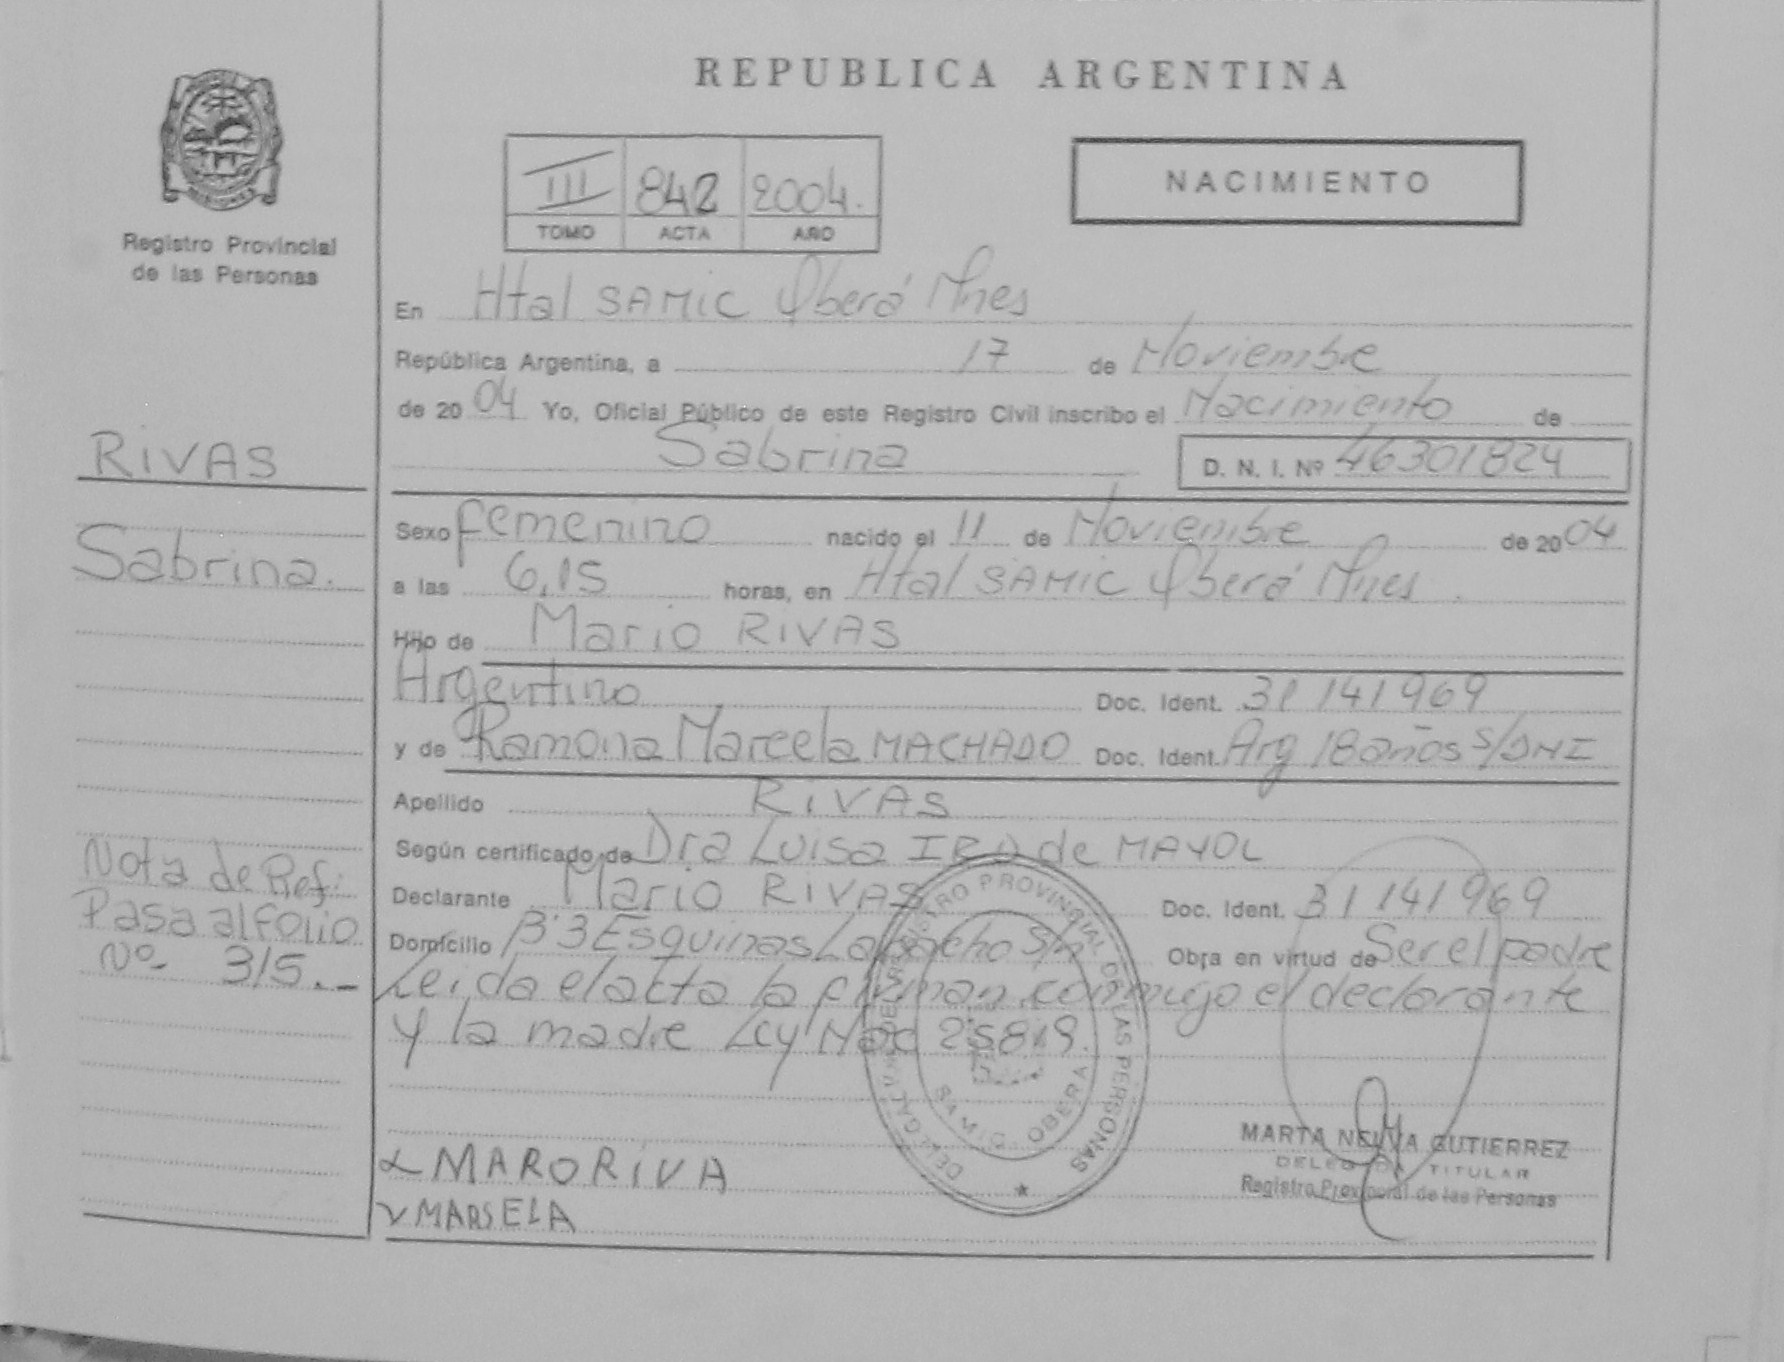 REPUBLICA ARGENTINA
Registro Provincial
de las Personas
III 842 2004.
TOMO ACTA AÑO
NACIMIENTO
En Htal SAMIC Oberá Mnes
República Argentina, a 17 de Noviembre
de 20 04 Yo, Oficial Público de este Registro Civil inscribo el Nacimiento de
Sabrina D. N. I. Nº 46301824
RIVAS
Sabrina.
Sexo femenino nacido el 11 de Noviembre de 20 04
a las 6,15 horas, en Htal SAMIC Oberá Mnes.
Hijo de Mario RIVAS
Argentino Doc. Ident. 31 141 969
y de Ramona Marcela MACHADO Doc. Ident. Arg 18 años S/DNI
Apellido RIVAS
Según certificado de Dra Luisa de MAYOL
Declarante Mario RIVAS Doc. Ident. 31 141 969
Domicilio B° 3 Esquinas Lapacho S/n Obra en virtud de Ser el padre
Leida el acta la firman conmigo el declarante
y la madre Ley Nac 25819.
Nota de Ref:
Pasa al folio
Nº 315.-
MARORIVA
MARSELA
REGISTRO PROVINCIAL DE LAS PERSONAS
SAMIC. OBERA
MARTA NELVA GUTIERREZ
DELEGADA TITULAR
Registro Provincial de las Personas